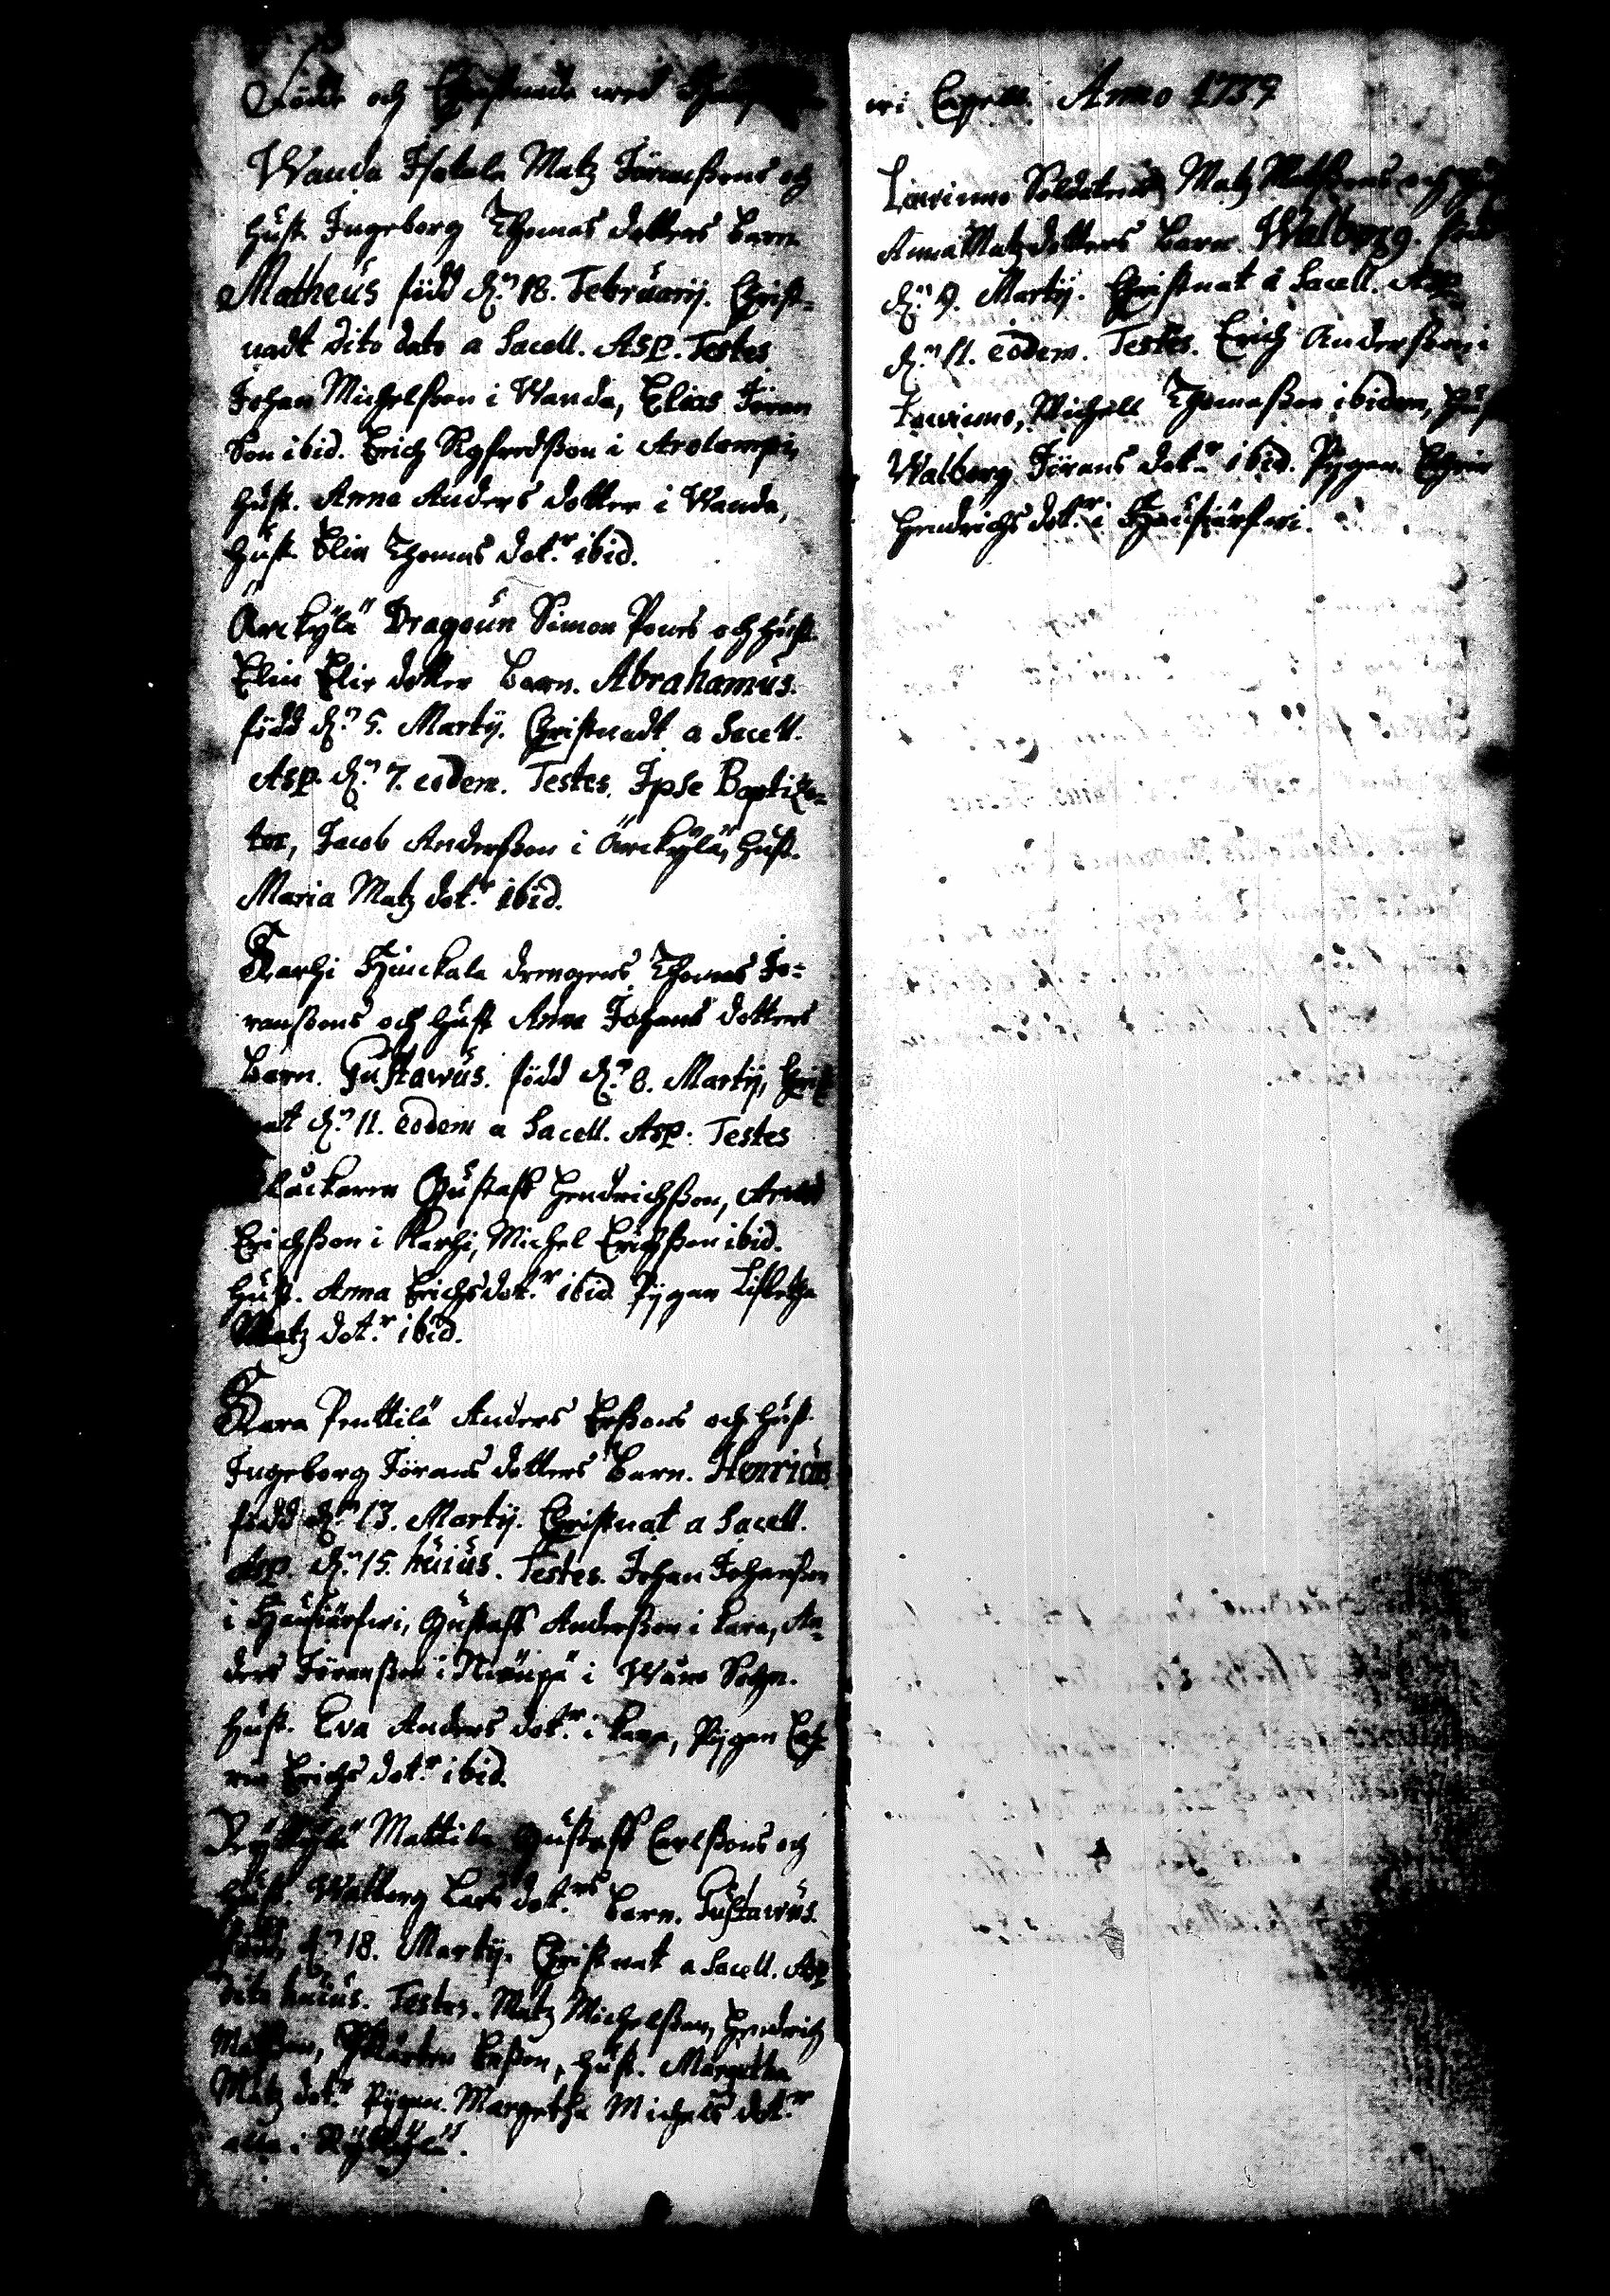 Födde och Christnade wed
Wanda Isotalo Matz Jöranßons och
hust. Ingeborg Thomas dotters barn
Matheus född d:n 18. Februarij. Christ-
nadt dito dato a Sacell. Asp. Testes
Johan Michelßon i Wanda, Elias Jöran
Son ibid. Erich Sigfredßon i Arolampi,
hust. Anna Anders dotter i Wanda,
hust. Elin Thomas dot:r ibid.
Ärckylä Dragoun Simon Pouis och hust.
Elin Elie dotter barn. Abrahamus.
född d:n 5. Martij. Christnadt a Sacell.
Asp. d:n 7. eodem. Testes. Ipse Baptiza-
tor, Jacob Anderßon i Ärckylä, hust.
Maria Matz dot:r ibid.
Karhi Hinckala drengens Thomas Jö-
ranßons och hust Anna Johans dotters
barn. Gustawus. född d:n 8. Martij, Christ
nat d:n 11. eodem a Sacell. Asp. Testes
Kläckaren Gustaff Hendrichßon,
Erichßon i Karhi, Michel Erichßon ibid.
hust. Anna Erichsdot:r ibid. Pÿgan Lisbetha
Matz dot:r ibid.
Kara Penttilä Anders Erßons och hust.
Ingeborg Jörans dotters barn. Henricus
född d:n 13. Martij. Christnat a Sacell.
Asp. d:n 15. huius. Testes. Johan Johanßon
i Hausjärfwi, Gustaff Anderßon i Kara, An-
ders Jöranßon i i Wånå Sochn.
hust. Eva Anders dot:r i Kara, Pÿgan Cath
rin Erichs dot:r ibid.
Ryttÿlä Mattila Gustaff Carlßons och
hust. Walborg Lars dot:rs barn. Gustawus.
född d:n 18. Martij. Christnat a Sacell. Asp
dito huius. Testes. Matz Michelßon, Hendrich
Matßon, Mårten Erßon, hust. Margetha
Matz dot:r Pÿgan. Margetha Michels dot:r
alla i Ryttÿlä.
wi Capell. Anno 1739
Lawinno Soldatens Matz Matßons och hust
Anna Matzdotters barn Walborg. född
d:n 9. Martij. Christnat a Sacell. Asp.
d:n 11. eodem. Testes. Erich Anderßon i
Lawinno, Michell Thomaßon ibidem, hust
Walborg Jörans dot:r ibid. Pÿgan. Cathrin
Hendrichs dot:r i Hausjärfwi.